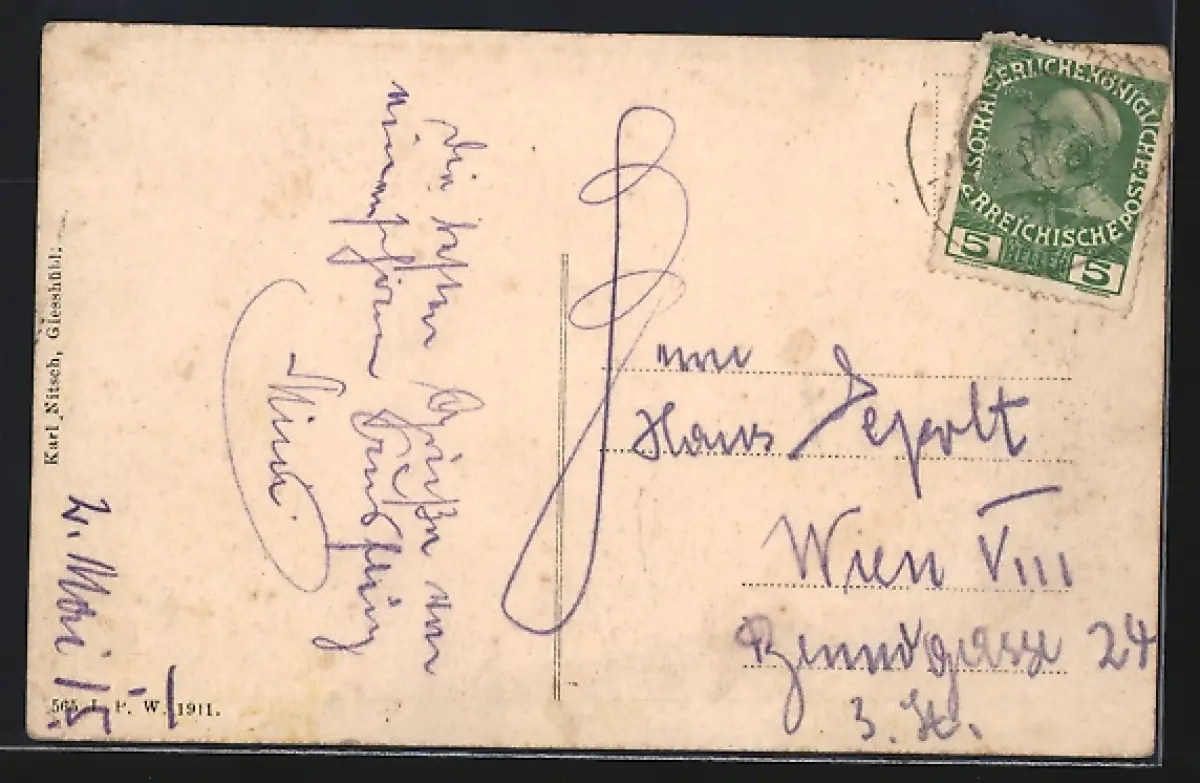 Die besten Grüße von
meinem schönen Ausflug
Mimi
2. Mai
Karl Nitsch, Giesshübl.
565 I. P. W. 1911.
KAISERLICHE KÖNIGLICHE
ÖSTERREICHISCHE POST
5 HELLER 5
Herrn
Hans
Wien VIII
Bennogasse 24
3. St.